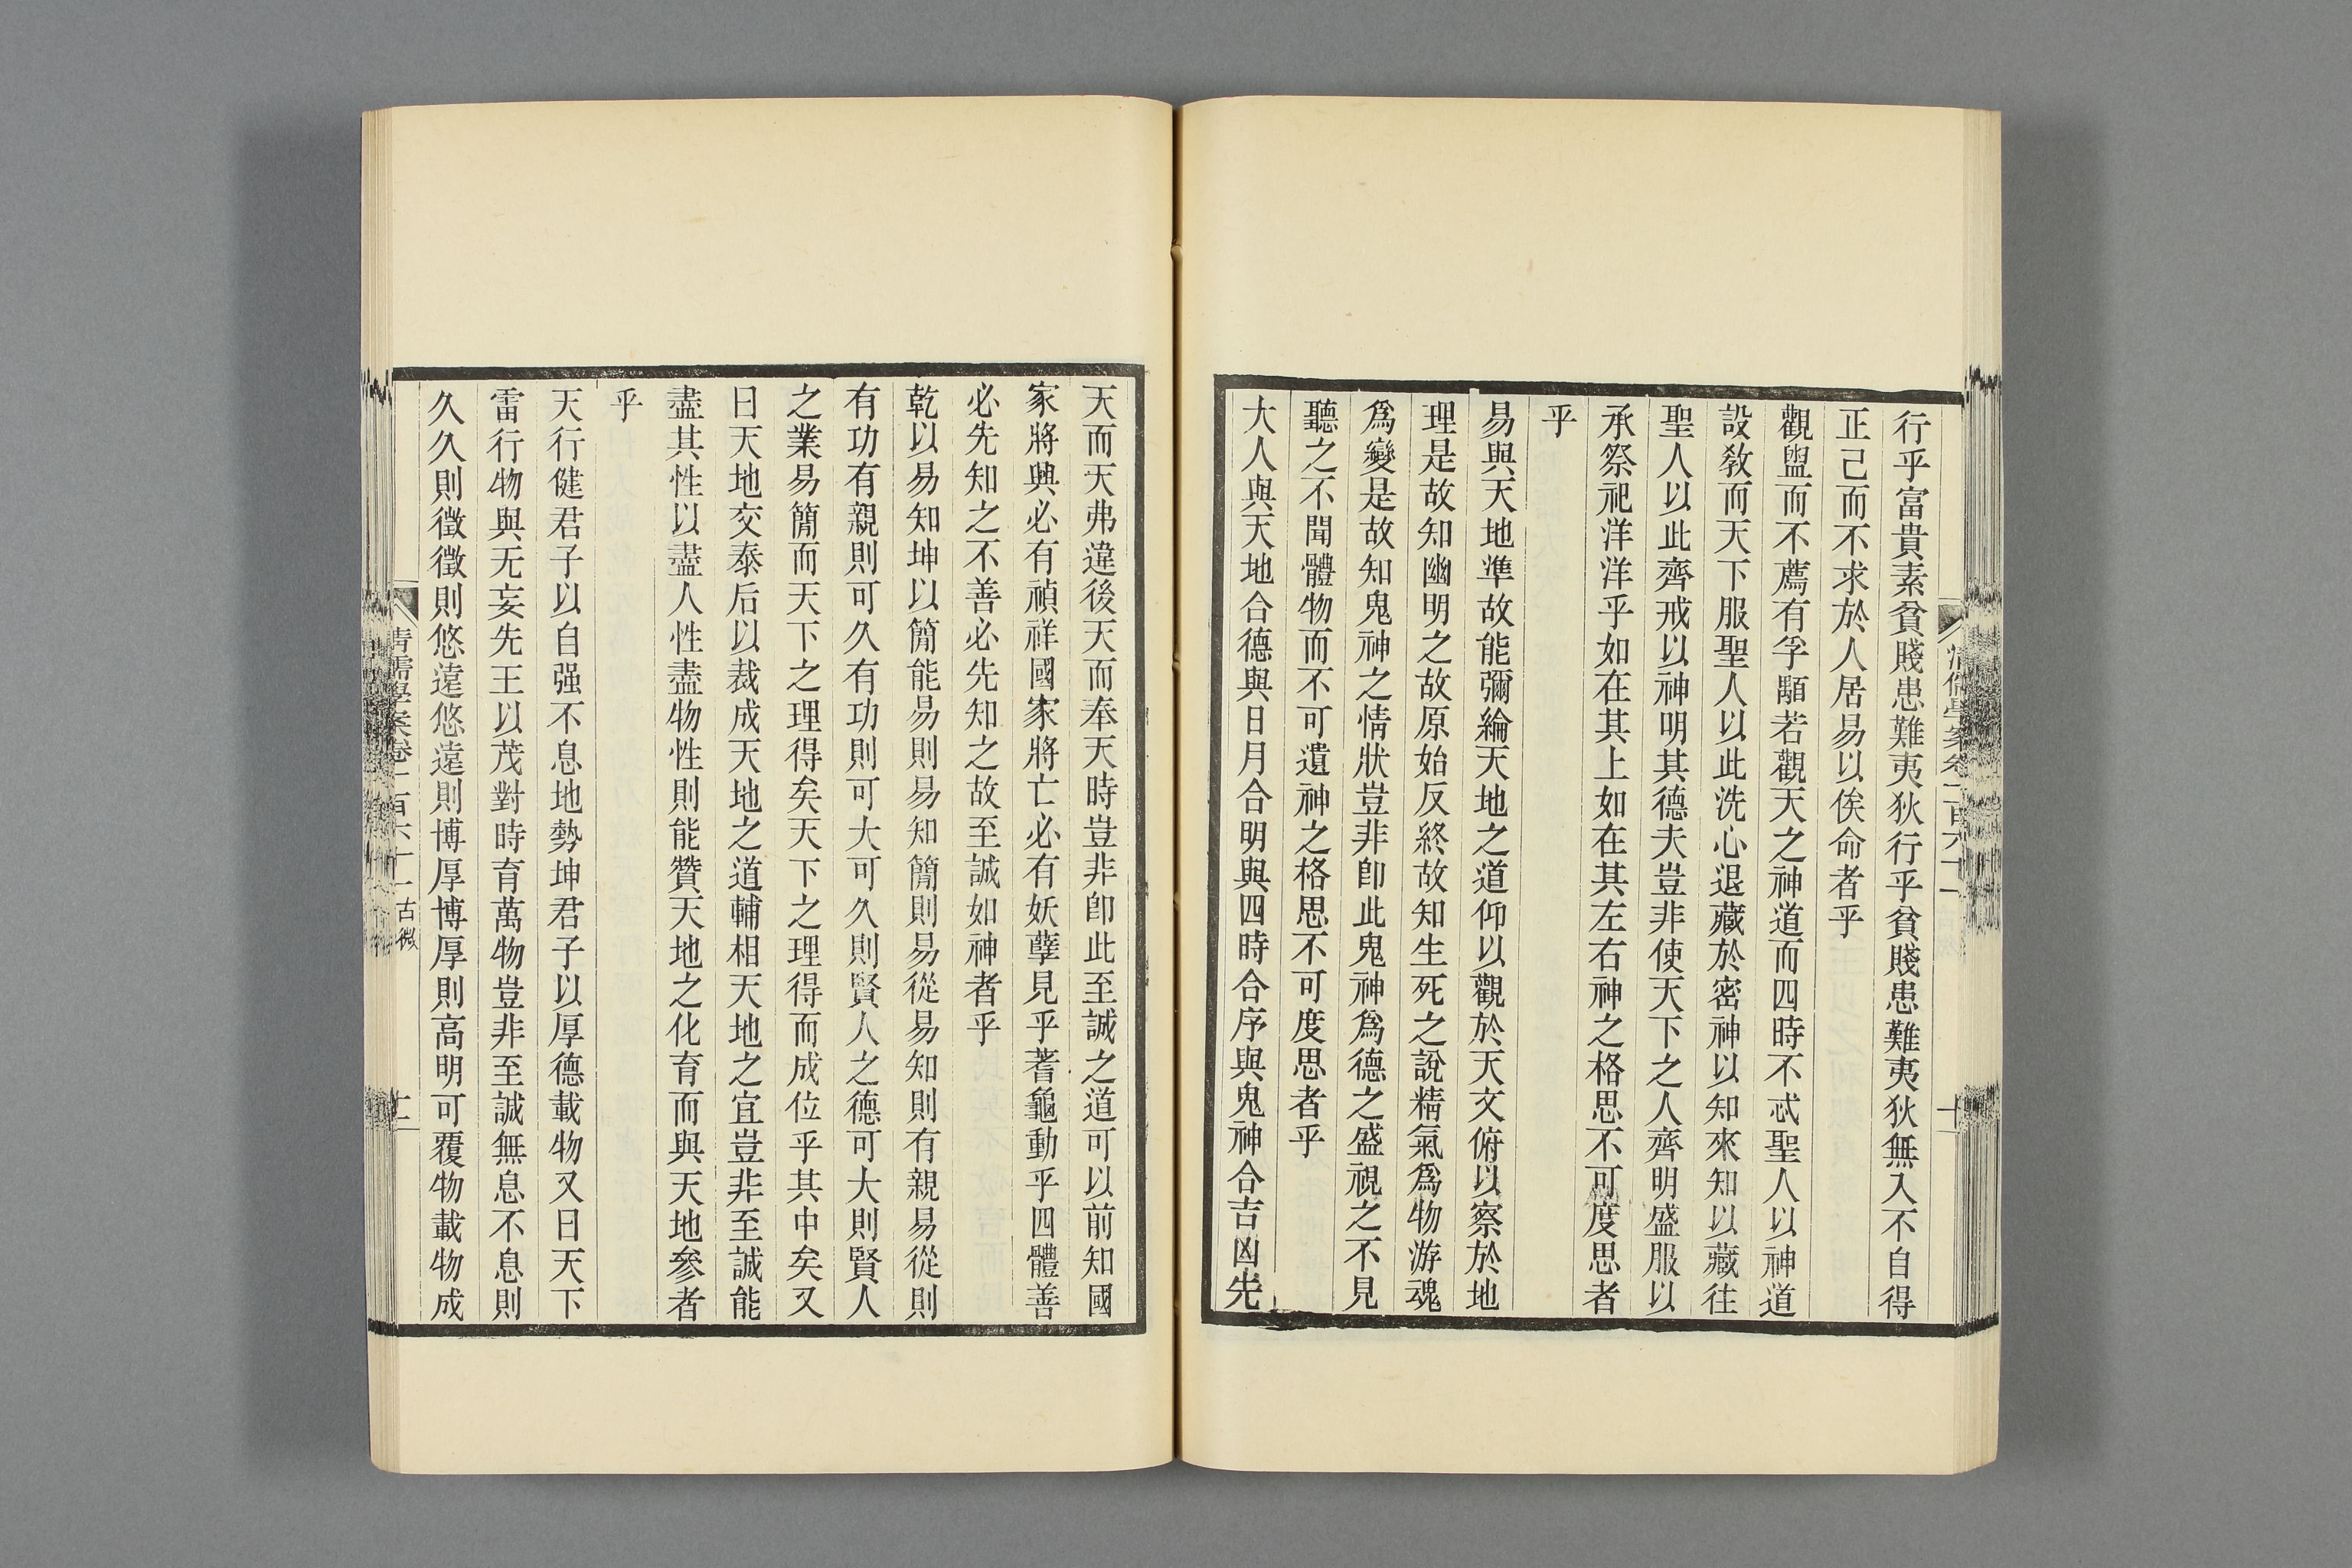 行乎富貴素貧賤患難夷狄行乎貧賤患難夷狄無入不自得
正己而不求於人居易以俟命者乎
觀盥而不薦有孚顒若觀天之神道而四時不忒聖人以神道
設敎而天下服聖人以此洗心退藏於密神以知來知以藏往
聖人以此齊戒以神明其德夫豈非使天下之人齊明盛服以
承祭祀洋洋乎如在其上如在其左右神之格思不可度思者
乎
易與天地準故能彌綸天地之道仰以觀於天文俯以察於地
理是故知幽明之故原始反終故知生死之說精氣爲物游魂
爲變是故知鬼神之情狀豈非卽此鬼神爲德之盛視之不見
聽之不聞體物而不可遺神之格思不可度思者乎
大人與天地合德與日月合明與四時合序與鬼神合吉凶先
天而天弗違後天而奉天時豈非卽此至誠之道可以前知國
家將興必有禎祥國家將亡必有妖孽見乎蓍龜動乎四體善
必先知之不善必先知之故至誠如神者乎
乾以易知坤以簡能易則易知簡則易從易知則有親易從則
有功有親則可久有功則可大可久則賢人之德可大則賢人
之業易簡而天下之理得矣天下之理得而成位乎其中矣又
曰天地交泰后以裁成天地之道輔相天地之宜豈非至誠能
盡其性以盡人性盡物性則能贊天地之化育而與天地參者
乎
天行健君子以自强不息地勢坤君子以厚德載物又曰天下
雷行物與无妄先王以茂對時育萬物豈非至誠無息不息則
久久則徵徵則悠遠悠遠則博厚博厚則高明可覆物載物成
清儒學案卷一百六十一 古微